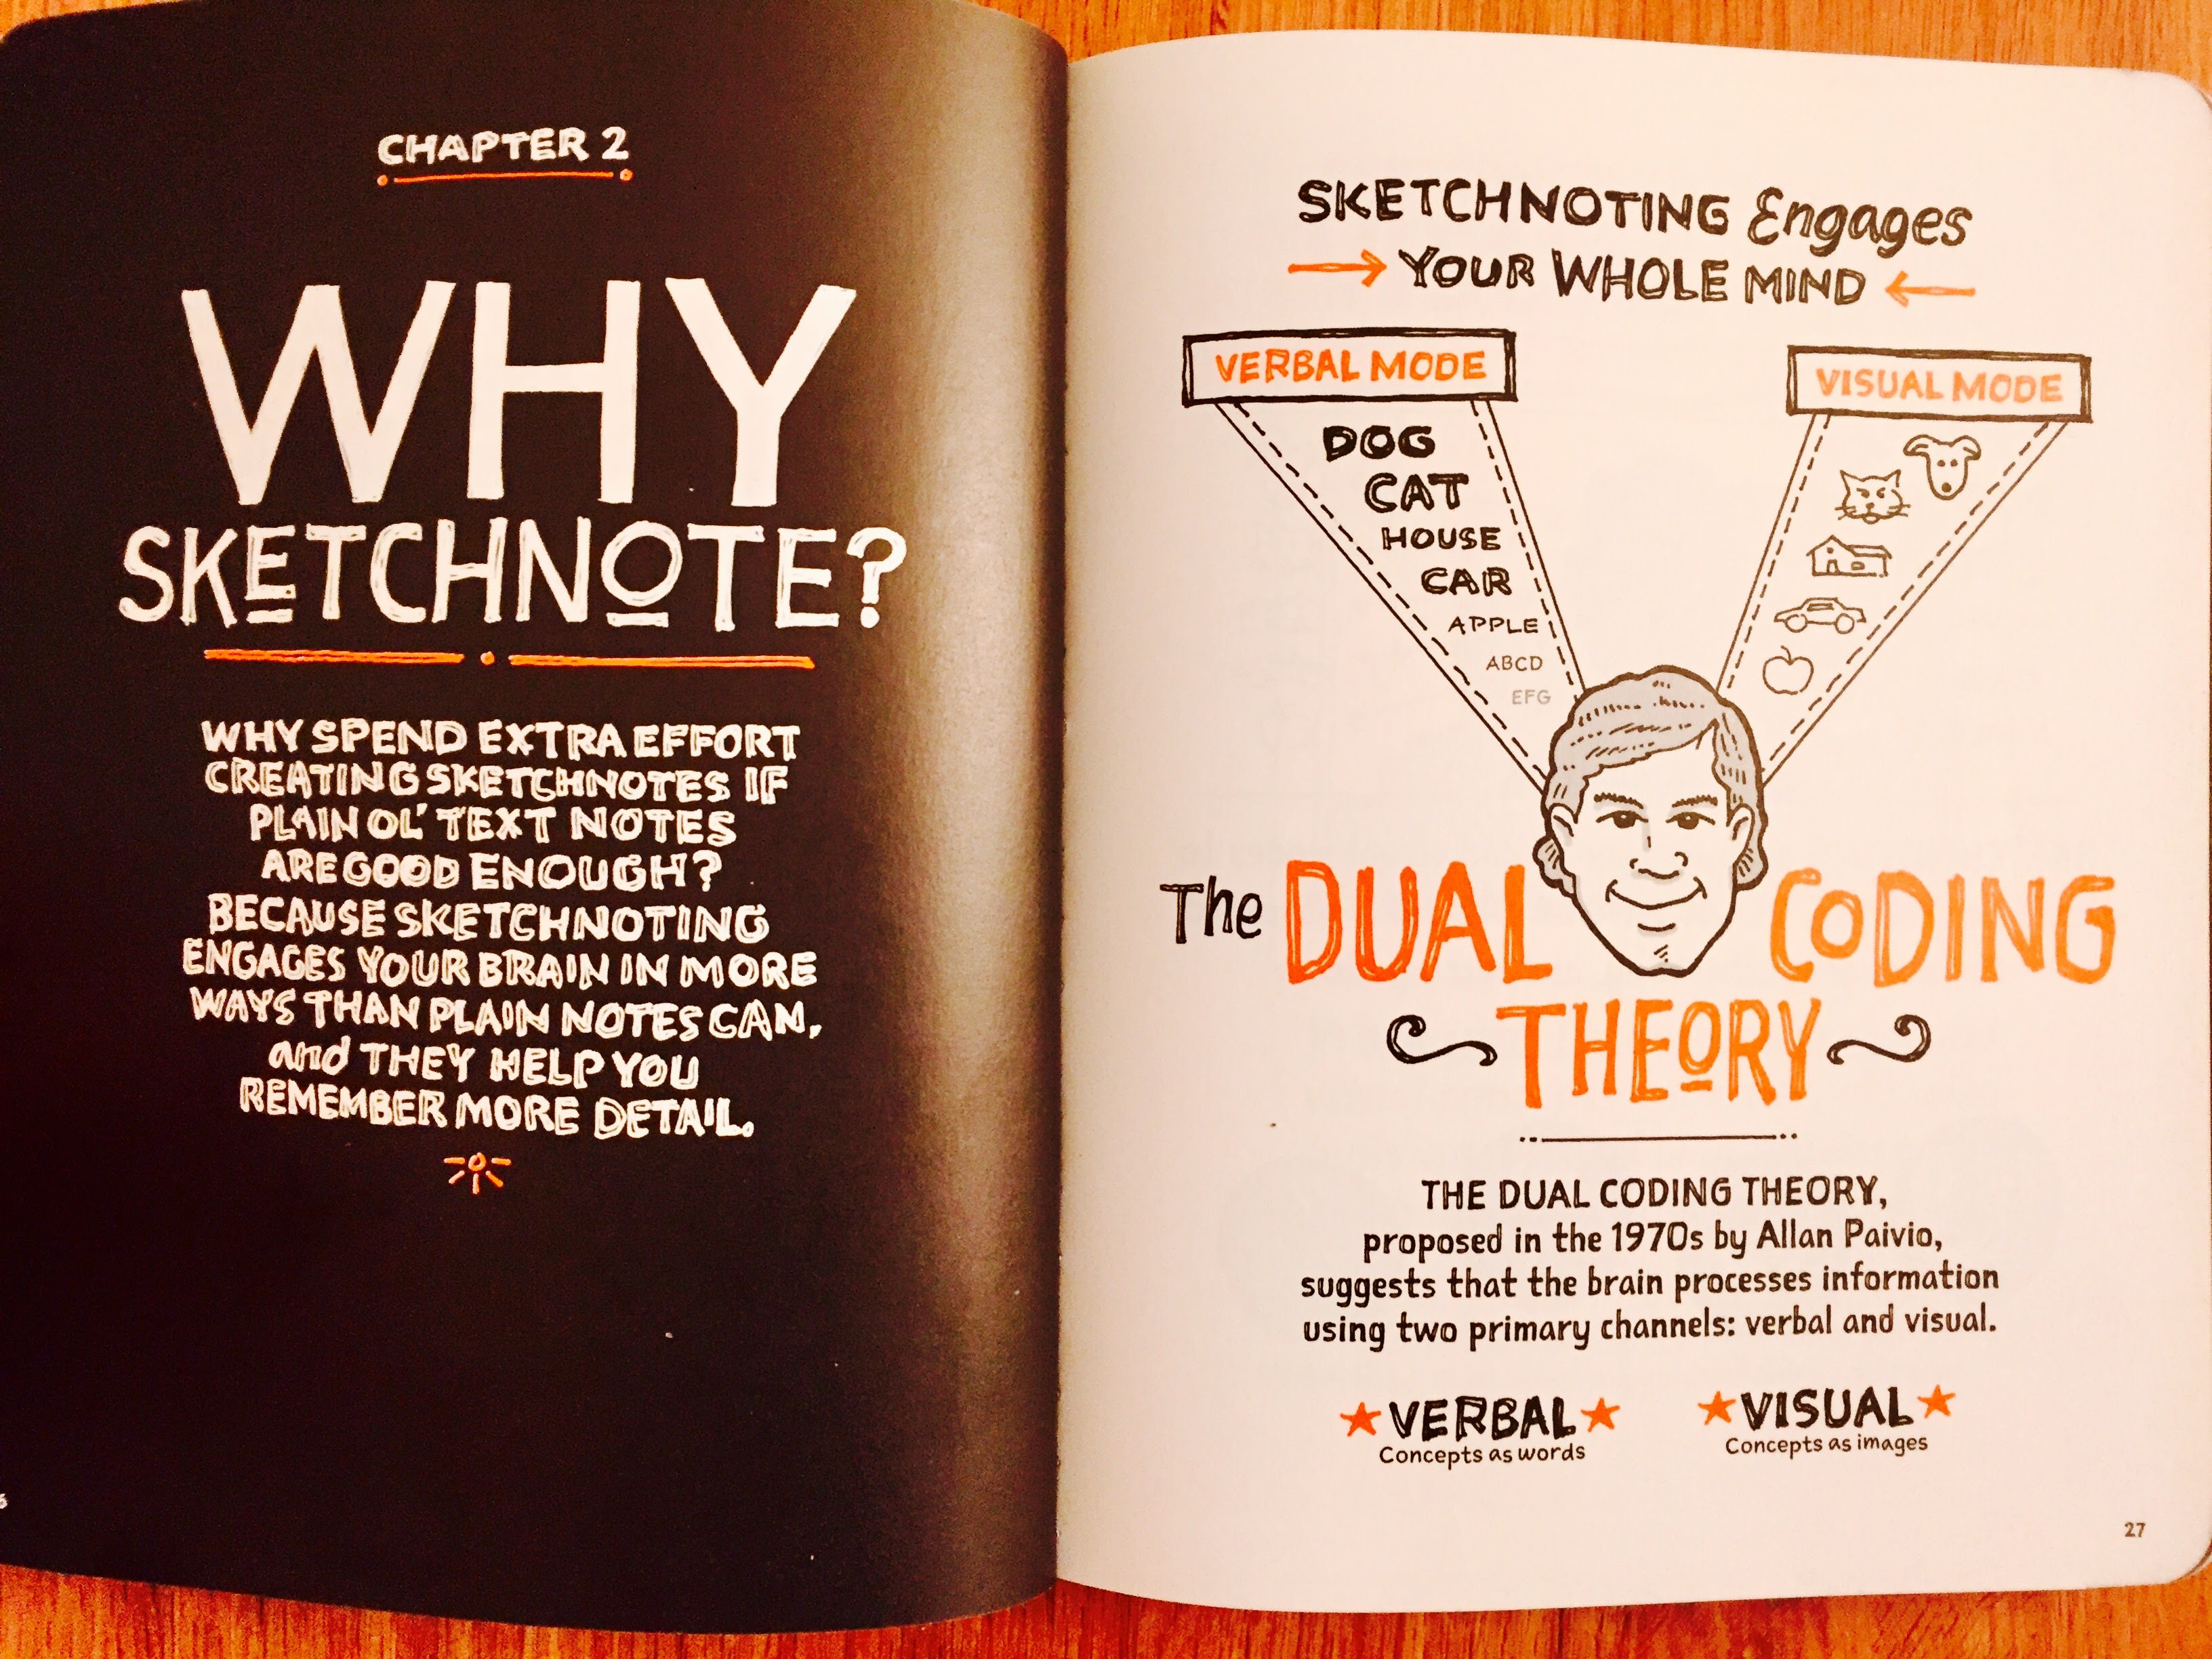 CHAPTER 2
WHY
SKETCHNOTE?
WHY SPEND EXTRA EFFORT
CREATING SKETCHNOTES IF
PLAIN OL' TEXT NOTES
ARE GOOD ENOUGH?
BECAUSE SKETCHNOTING
ENGAGES YOUR BRAIN IN MORE
WAYS THAN PLAIN NOTES CAN,
and THEY HELP YOU
REMEMBER MORE DETAIL.
SKETCHNOTING Engages
YOUR WHOLE MIND
VERBAL MODE
DOG
CAT
HOUSE
CAR
APPLE
ABCD
EFG
VISUAL MODE
The DUAL CODING
THEORY
THE DUAL CODING THEORY,
proposed in the 1970s by Allan Paivio,
suggests that the brain processes information
using two primary channels: verbal and visual.
VERBAL
Concepts as words
VISUAL
Concepts as images
27